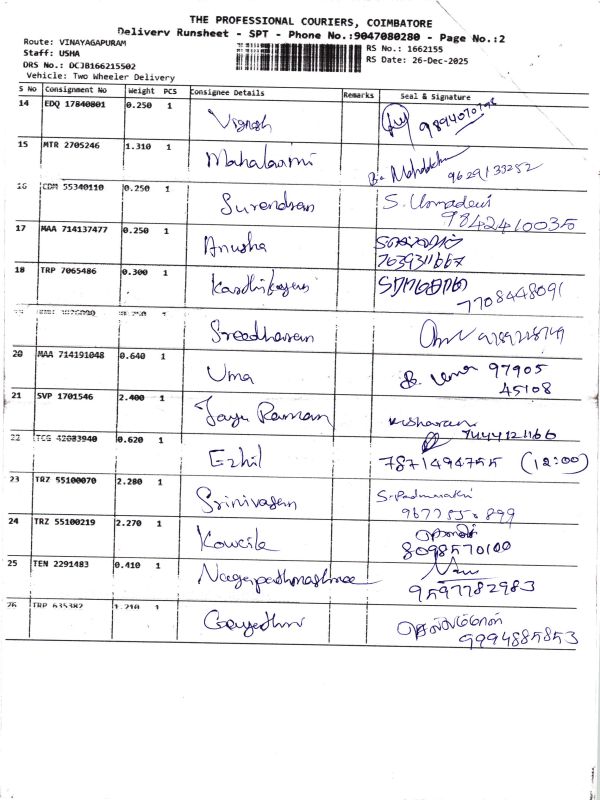 THE PROFESSIONAL COURIERS, COIMBATORE
Delivery Runsheet - SPT - Phone No.:9047080280 - Page No.:2
Route: VINAYAGAPURAM
Staff: USHA
DRS No.: DCJB166215502
Vehicle: Two Wheeler Delivery
RS No.: 1662155
RS Date: 26-Dec-2025
S No Consignment No Weight PCS Consignee Details Remarks Seal & Signature
14 EDQ 17840801 0.250 1 Vignesh
15 MTR 2705246 1.310 1 Mahalaxmi 9629133252
16 CDM 55340110 0.250 1 Surendran S. Umadevi
9842410035
17 MAA 714137477 0.250 1 Anusha
7639311667
18 TRP 7065486 0.300 1 Karthikayeni
7708448091
Sreedharan
20 MAA 714191048 0.640 1 Uma 97905
45108
21 SVP 1701546 2.400 1 Jaya Raman
7444121166
22 TCG 42083940 0.620 1 Ezhil 7871494755 (12:00)
23 TRZ 55100070 2.280 1 Srinivasan
24 TRZ 55100219 2.270 1 Kowsila
8098570100
25 TEN 2291483 0.410 1
9597782983
26 TRP 635382 1.210 1 Gayathri
9994885853